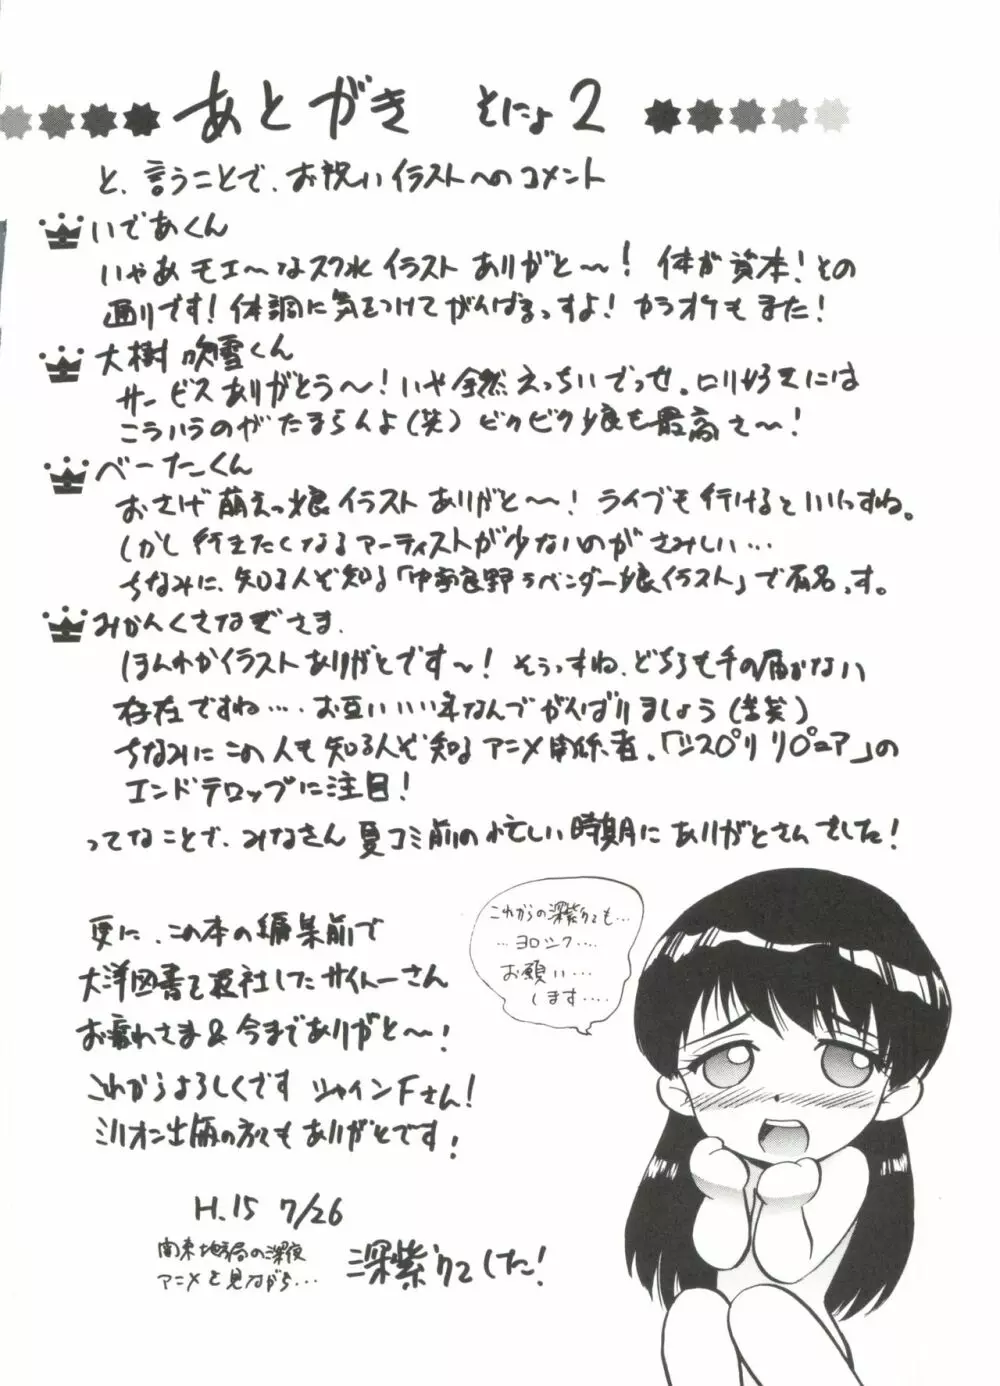 あとがき そにょ2
と、言うことで、お祝いイラストへのコメント
いであくん
いやあモエ〜なスク水イラストありがと〜! 体が資本!その
通りです!体調に気をつけてがんばるっすよ!カラオケもまた!
大樹吹雪くん
サービスありがとう〜!いや全然えっちいでっせ。ロリ好きには
こういうのがたまらんよ(笑)ビクビク少娘も最高さ〜!
べーたくん
おさげ萌えっ娘イラストありがと〜!ライブも行けるといいっすね。
しかし行きたくなるアーティストが少ないのがさみしい…
ちなみに、知る人ぞ知る「中富良野ラベンダー娘イラスト」で有名っす。
みかんくさなぎさま、
ほんわかイラストありがとです〜!そうっすね、どちらも手の届かない
存在ですね…お互いいい年なんでがんばりましょう(苦笑)
ちなみにこの人も知る人ぞ知るアニメ関係者。「シスプリ リピュア」の
エンドテロップに注目!
ってなことで、みなさん夏コミ前の忙しい時期にありがとさんでした!
更に、この本の編集前で
大洋図書を退社したサイトーさん
お疲れさま&今までありがと〜!
これからよろしくです シャインFさん!
ミリオン出版の方々もありがとです!
H.15 7/26
関東地方局の深夜
アニメを見ながら…
深紫でした!
これからの深紫も…
…ヨロシク…
お願い…
します…